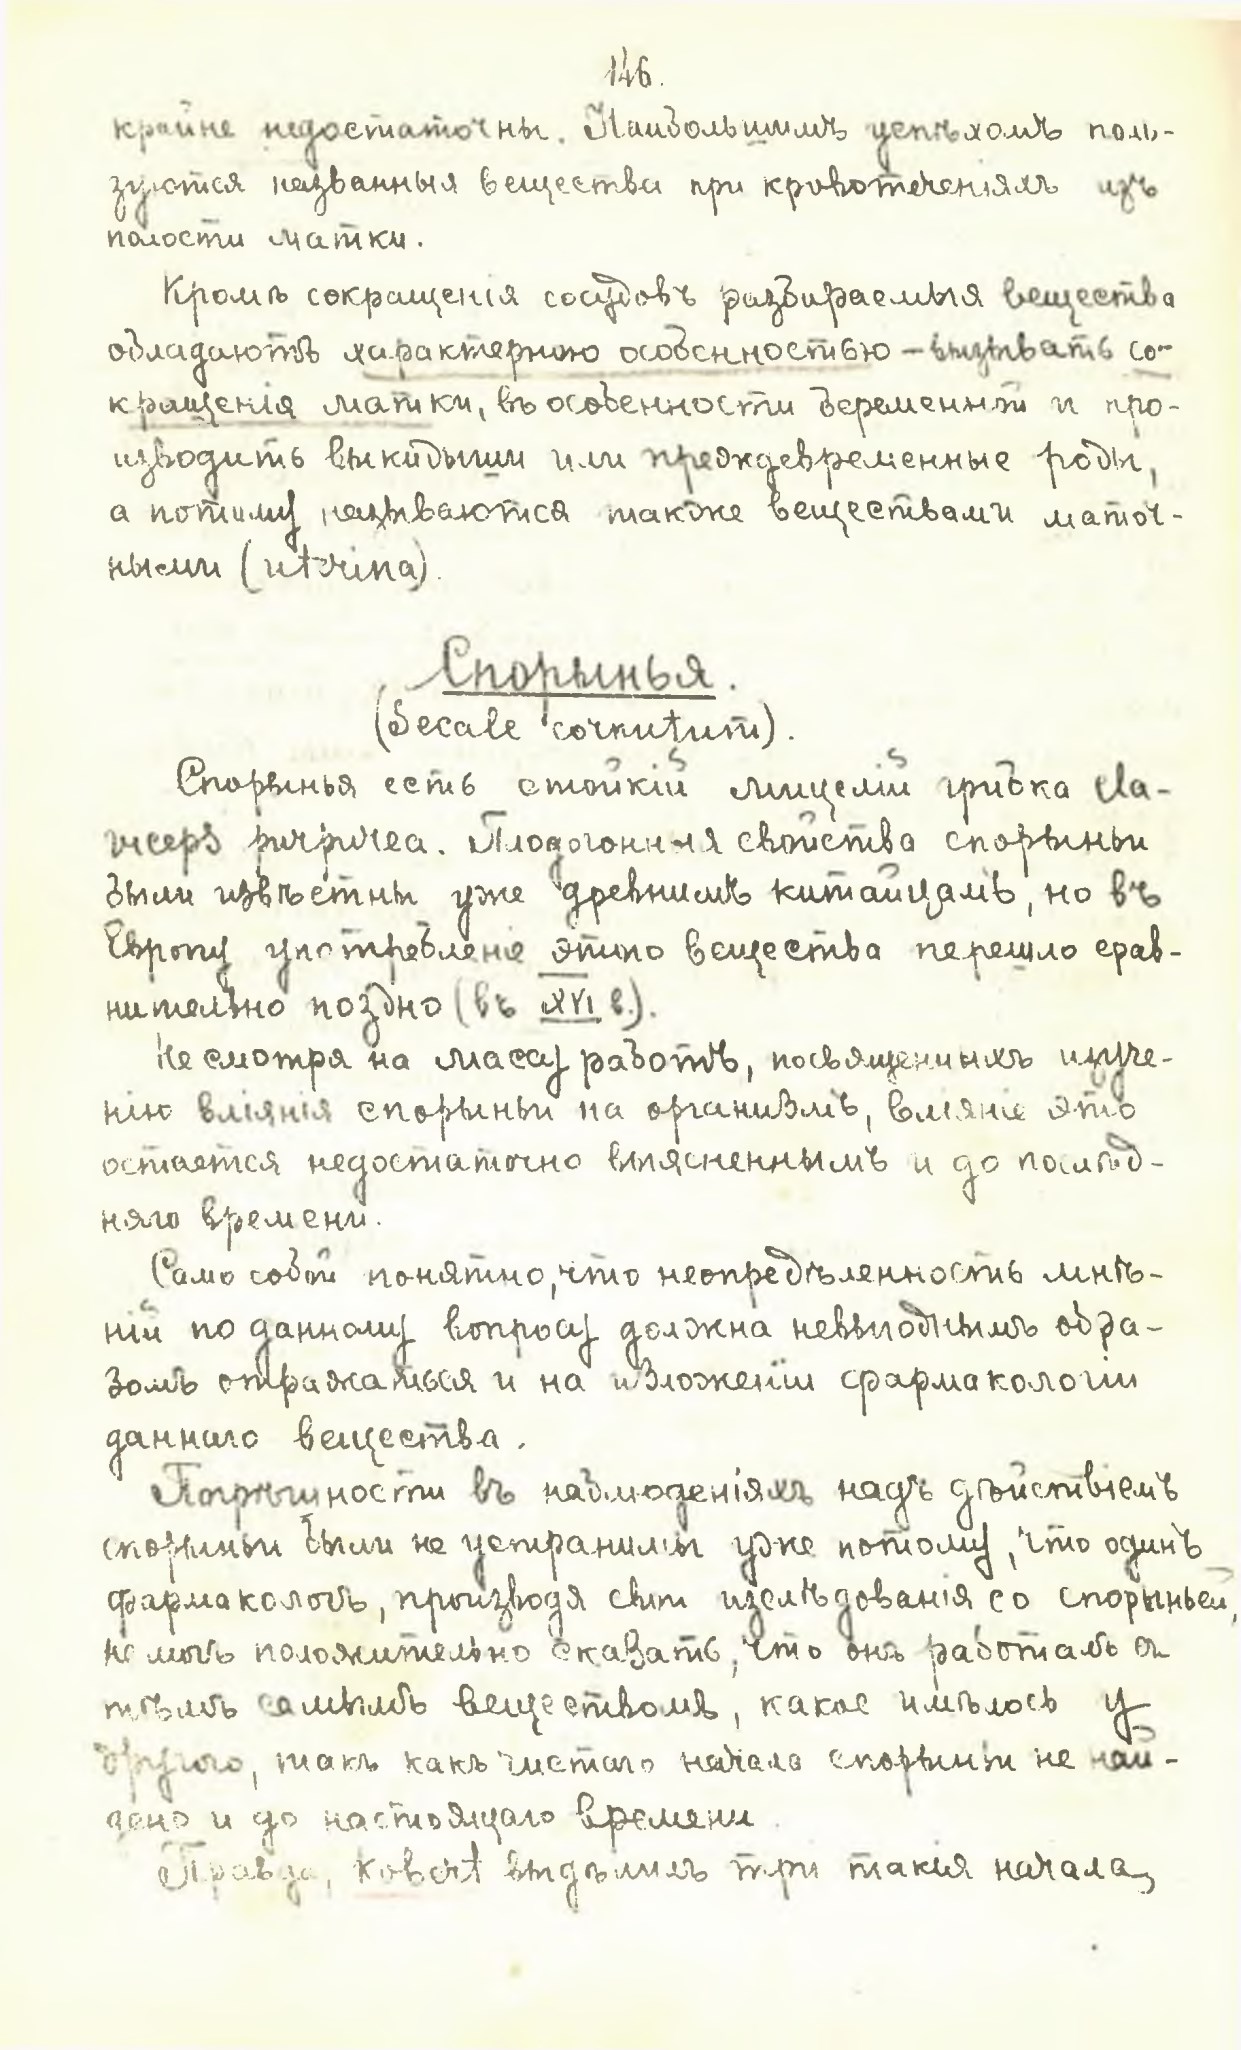 146.
крайне недостаточны. Наибольшимъ успѣхомъ поль-
зуются названныя вещества при кровотеченіяхъ изъ
полости матки.
Кромѣ сокращенія сосудовъ разбираемыя вещества
обладаютъ характерною особенностью – вызывать со-
кращенія матки, въ особенности беременной и про-
изводить выкидыши или преждевременные роды,
а потому называются также веществами маточ-
ными (uterina).
Спорынья.
(Secale cornutum).
Спорынья есть стойкій мицелій грибка Cla-
viceps purpurea. Плодогонныя свойства спорыньи
были извѣстны уже древнимъ китайцамъ, но въ
Европу употребленіе этого вещества перешло срав-
нительно поздно (въ XVI в.).
Не смотря на массу работъ, посвященныхъ изуче-
нію вліянія спорыньи на организмъ, вліяніе это
остается недостаточно выясненнымъ и до послѣд-
няго времени.
Само собой понятно, что неопредѣленность мнѣ-
ній по данному вопросу должна невыгоднымъ обра-
зомъ отражаться и на изложеніи фармакологіи
даннаго вещества.
Погрѣшности въ наблюденіяхъ надъ дѣйствіемъ
спорыньи были не устранимы уже потому, что одинъ
фармакологъ, производя свои изслѣдованія со спорыньей,
не могъ положительно сказать, что онъ работалъ съ
тѣмъ самымъ веществомъ, какое имѣлось у
другого, такъ какъ чистаго начала спорыньи не най-
дено и до настоящаго времени
Правда, Kobert выдѣлилъ три такія начала,